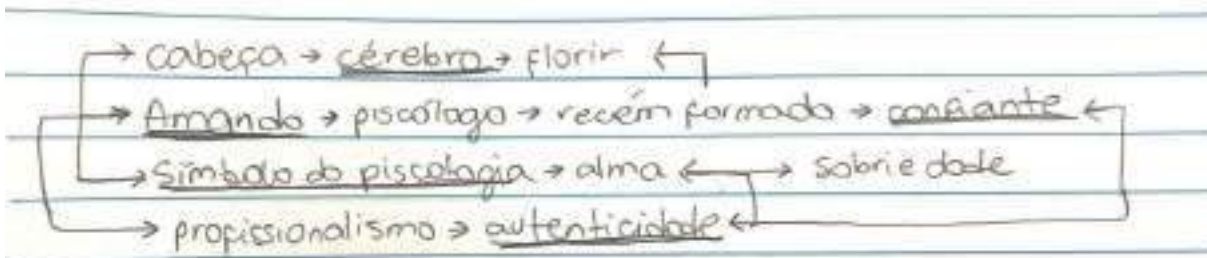 cabeça → cérebro → florir
Amando → piscólogo → recém formado → confiante
Símbolo da piscologia → alma ↔ sobriedade
profissionalismo → autenticidade